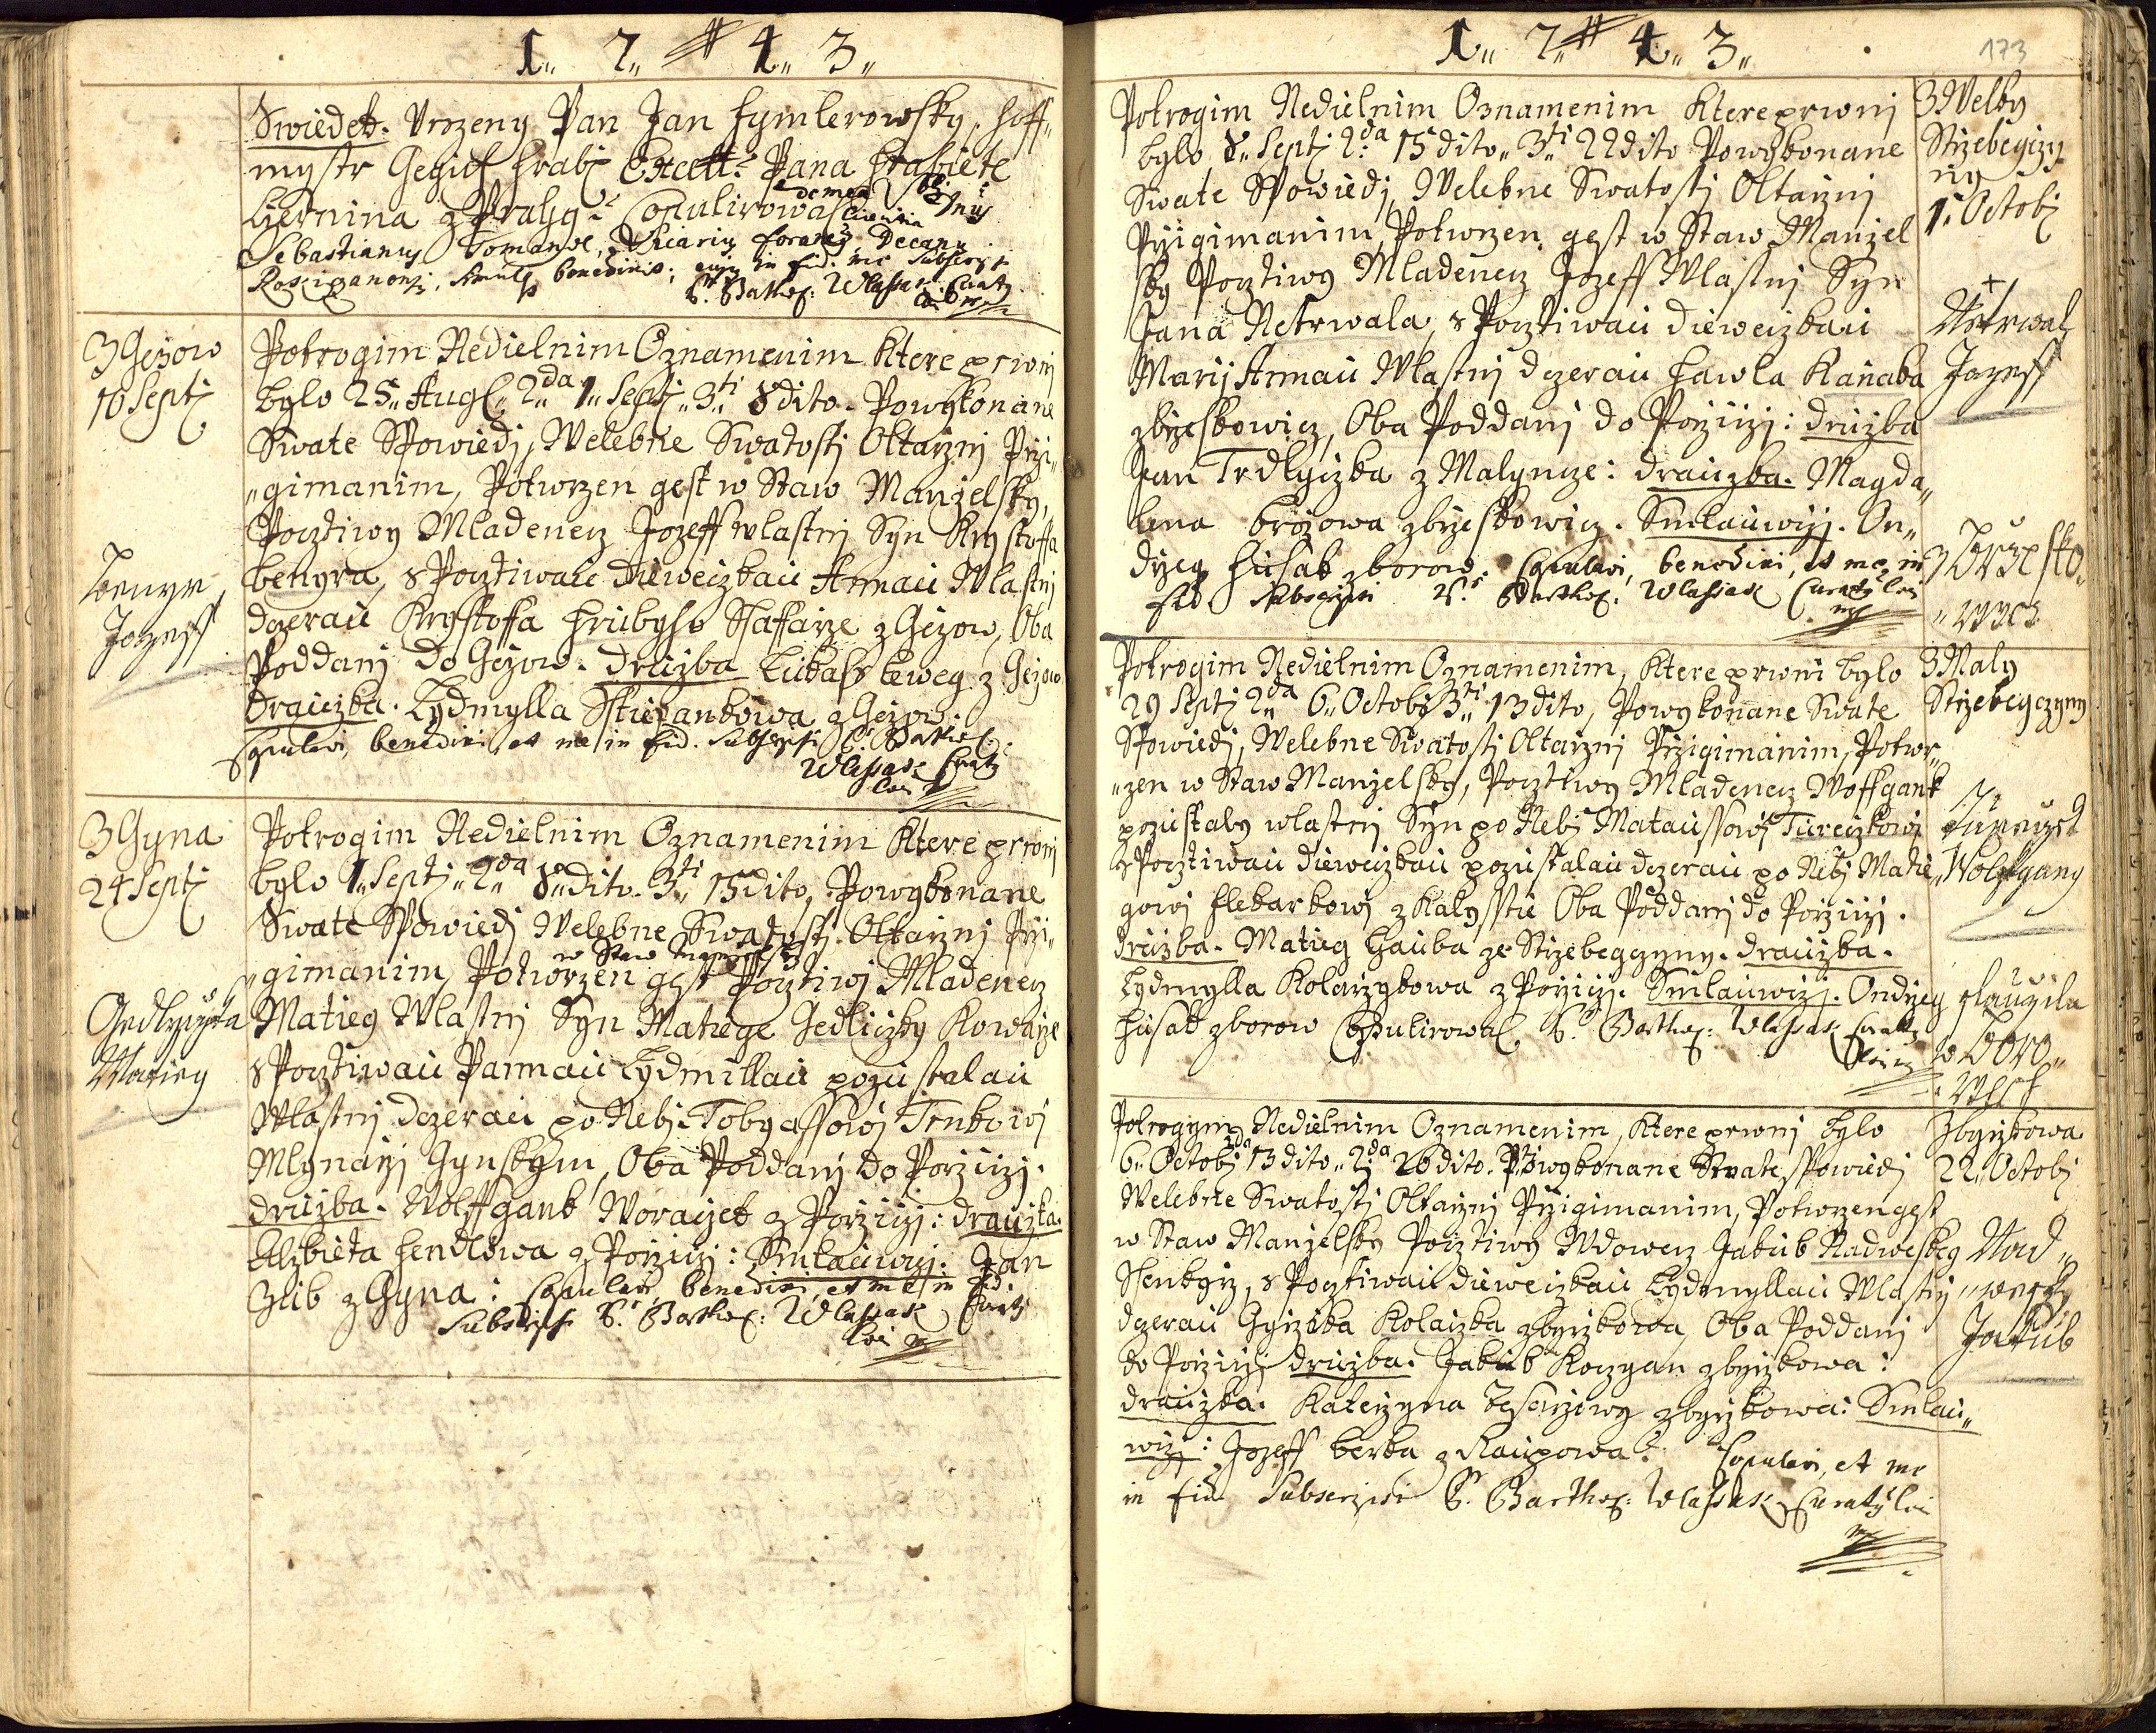 1„ 7„ 4„ 3„
Swiedek. Urozeny Pan Jan
mystr Gegich Hrabj Excell: Pana Hrabiete
Czernina z Prahy: Copulirowal
Sebastianus Tomanek, Vicarius Foraneus, Decanus
benedixit, in fid: me Subscripsi
P. Barthol: Wlassak Curatus
loci mp
3 Gezow
10 Septj
Potrogim Nedielnim Oznamenim Ktere prwnj
bylo 25„ Aug„ 2„da 1„ Septj„ 3„ti 8 dito. Powykonane
Swate Spowiedj, Welebne Swatostj Oltarznj Przi„
„gimanim, Potwrzen gest w Staw Manzelsky,
Pocztiwy Mladenecz Jozeff wlastnj Syn Krystoffa
Benyra, s Pocztiwau Dieweczkau Annau Wlastnj
dczerau Krystoffa Hrubyho Ssaffarze z Gezow, Oba
Poddanj do Gezow. Druzba Lukass z Gezow
Drauzka. Lydmylla Sstiepankowa z Gezow.
Copulavi, benedixi et me in fid. Subscripsi P. Barthol:
Wlassak Curatus
loci
Benyr
Jozeff
3 Gyna
24 Septj
Potrogim Nedielnim Oznamenim Ktere prwnj
bylo 1„ Septj„ 2„da 8„ dito. 3„ti 15 dito, Powykonane
Swate Spowiedj Welebne Swatostj Oltarznj Przi„
w Staw Manzelsky
„gimanim, Potwrzen gest Pocztiwj Mladenecz
Matieg Wlastnj Syn Matiege Gedliczky Kowarze
s Pocztiwau Pannau Lydmillau pozustalau
Wlastnj dczerau po Nebj. Tobyassowj Trnkowj
Mlynarzj Gynskym, Oba Poddanj do Porziczj.
Druzba. Wolffgank Woraczek z Porziczj: Drauzka.
Alzbieta Hendlowa z Porziczj: Smlauwczj. Jan
Zub z Gyna: Copulavi, benedixi, et me in fid.
Subscripsi P. Barthol: Wlassak Curatus
loci mp
Gedlyczka
Matieg
1„ 7„ 4„ 3„
173
Potrogim Nedielnim Oznamenim Ktere prwnj
bylo 8„ Septj 2„da 15 dito„ 3„ti 22 dito Powykonane
Swate Spowiedj, Welebne Swatostj Oltarznj
Przigimanim, Potwrzen gest w Staw Manzel
sky Pocztiwy Mladenecz Jozeff Wlastnj Syn
Jana Netrwala, s Pocztiwau dieweczkau
Marij Annau Wlastnj dczerau Hawla Kanaba
z Brzeskowicz, Oba Poddanj do Porziczj: Druzba
Jan Trdlyczka z Malyncze: Drauzka. Magda„
lena Brozowa z Brzeskowicz. Smlauwczj. On„
drzeg Husak z Borow. Copulavi, benedixi, et me in
fid. Subscripsi P. Barthol: Wlassak Curatus loci
mp
3 Welky
Strzebegczy
ny
1. Octobj
+
Netrwal
Jozeff
z Brzesko„
„wycz
Potrogim Nedielnim Oznamenim, Ktere prwnj bylo
29 Septj 2„da 6„ Octobj 3„ti 13 dito, Powykonane Swate
Spowiedj, Welebne Swatostj Oltarznj Przigimanim, Potwr„
„zen w Staw Manzelsky, Pocztiwy Mladenecz Woffgank
pozustaly wlastnj Syn po Nebj Mataussowj Tureczkowj
s Pocztiwau dieweczkau pozustalau dczerau po Nebj Matie„
gowj Flekarkowj z Kalysstie Oba Poddanj do Porziczj.
Druzba. Matieg Hauba ze Strzebegczyny. Drauzka.
Lydmylla Kolarzykowa z Porziczj. Smlauwczj. Ondrzeg
Husak z Borow Copulirowal P. Barthol: Wlassak Curatus
loci
3 Maly
Strzebegczyny
Tureczek
Wolfgang
Potrogym Nedielnim Oznamenim, Ktere prwnj bylo
6„ Octobj 13 dito„ 2„da 20 dito. Powykonane Swate Spowiedj
Welebne Swatostj Oltarznj Przigimanim, Potwrzen gest
w Staw Manzelsky Pocztiwy Wdowecz Jakub Nadwesky
Ssenkyrz, s Pocztiwau dieweczkau Lydmyllau Wlastnj
dczerau Gyrzika Kolaczka z Byrzkowa, Oba Poddanj
do Porziczj Druzba. Jakub z Byrzkowa:
Drauzka. Katerzyna z Byrzkowa: Smlau„
wczj: Jozeff Berka z Raupowa: Copulavi, et me
in fid. Subscripsi P. Barthol: Wlassak Curatus loci
mp
Zbyrzkowa
22„ Octobj
Nad„
„wesky
Jakub